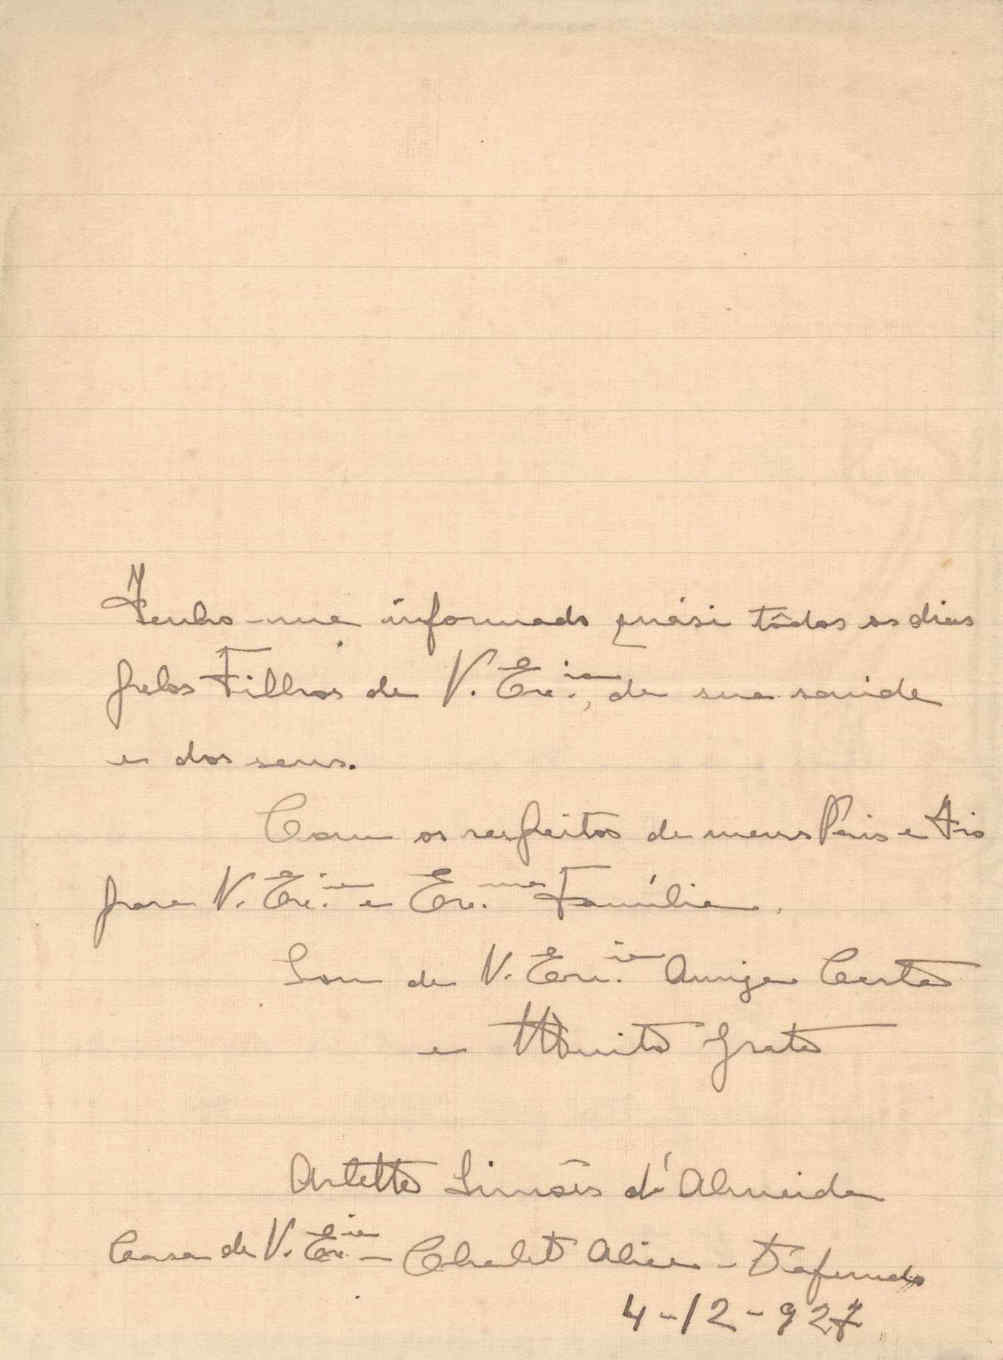 Tenho-me informado quási todos os dias
pelos Filhos de V. Exc.ia, de sua saude
e dos seus.
Com os respeitos de meus Pais e Tio
para V. Exc.ia e Ex.ma Família,
Sou de V. Exc.ia Amigo Certo
e Muito Grato
Arletto Simões d'Almeida
Casa de V. Exc.ia - Chalet Alice - Dáfundo
4-12-927